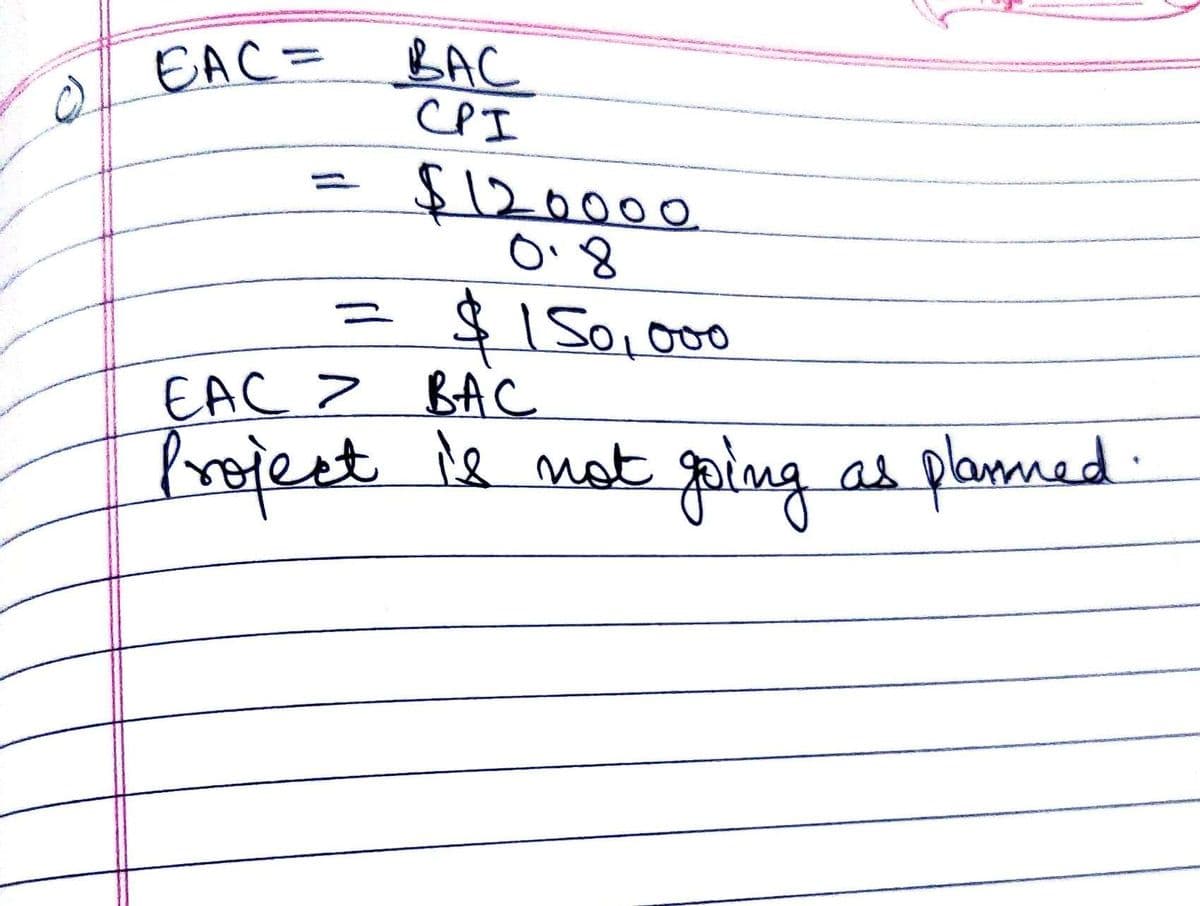 EAC = BAC
CPI
= $120000
0.8
= $150,000
EAC > BAC
Project is not going as planned.